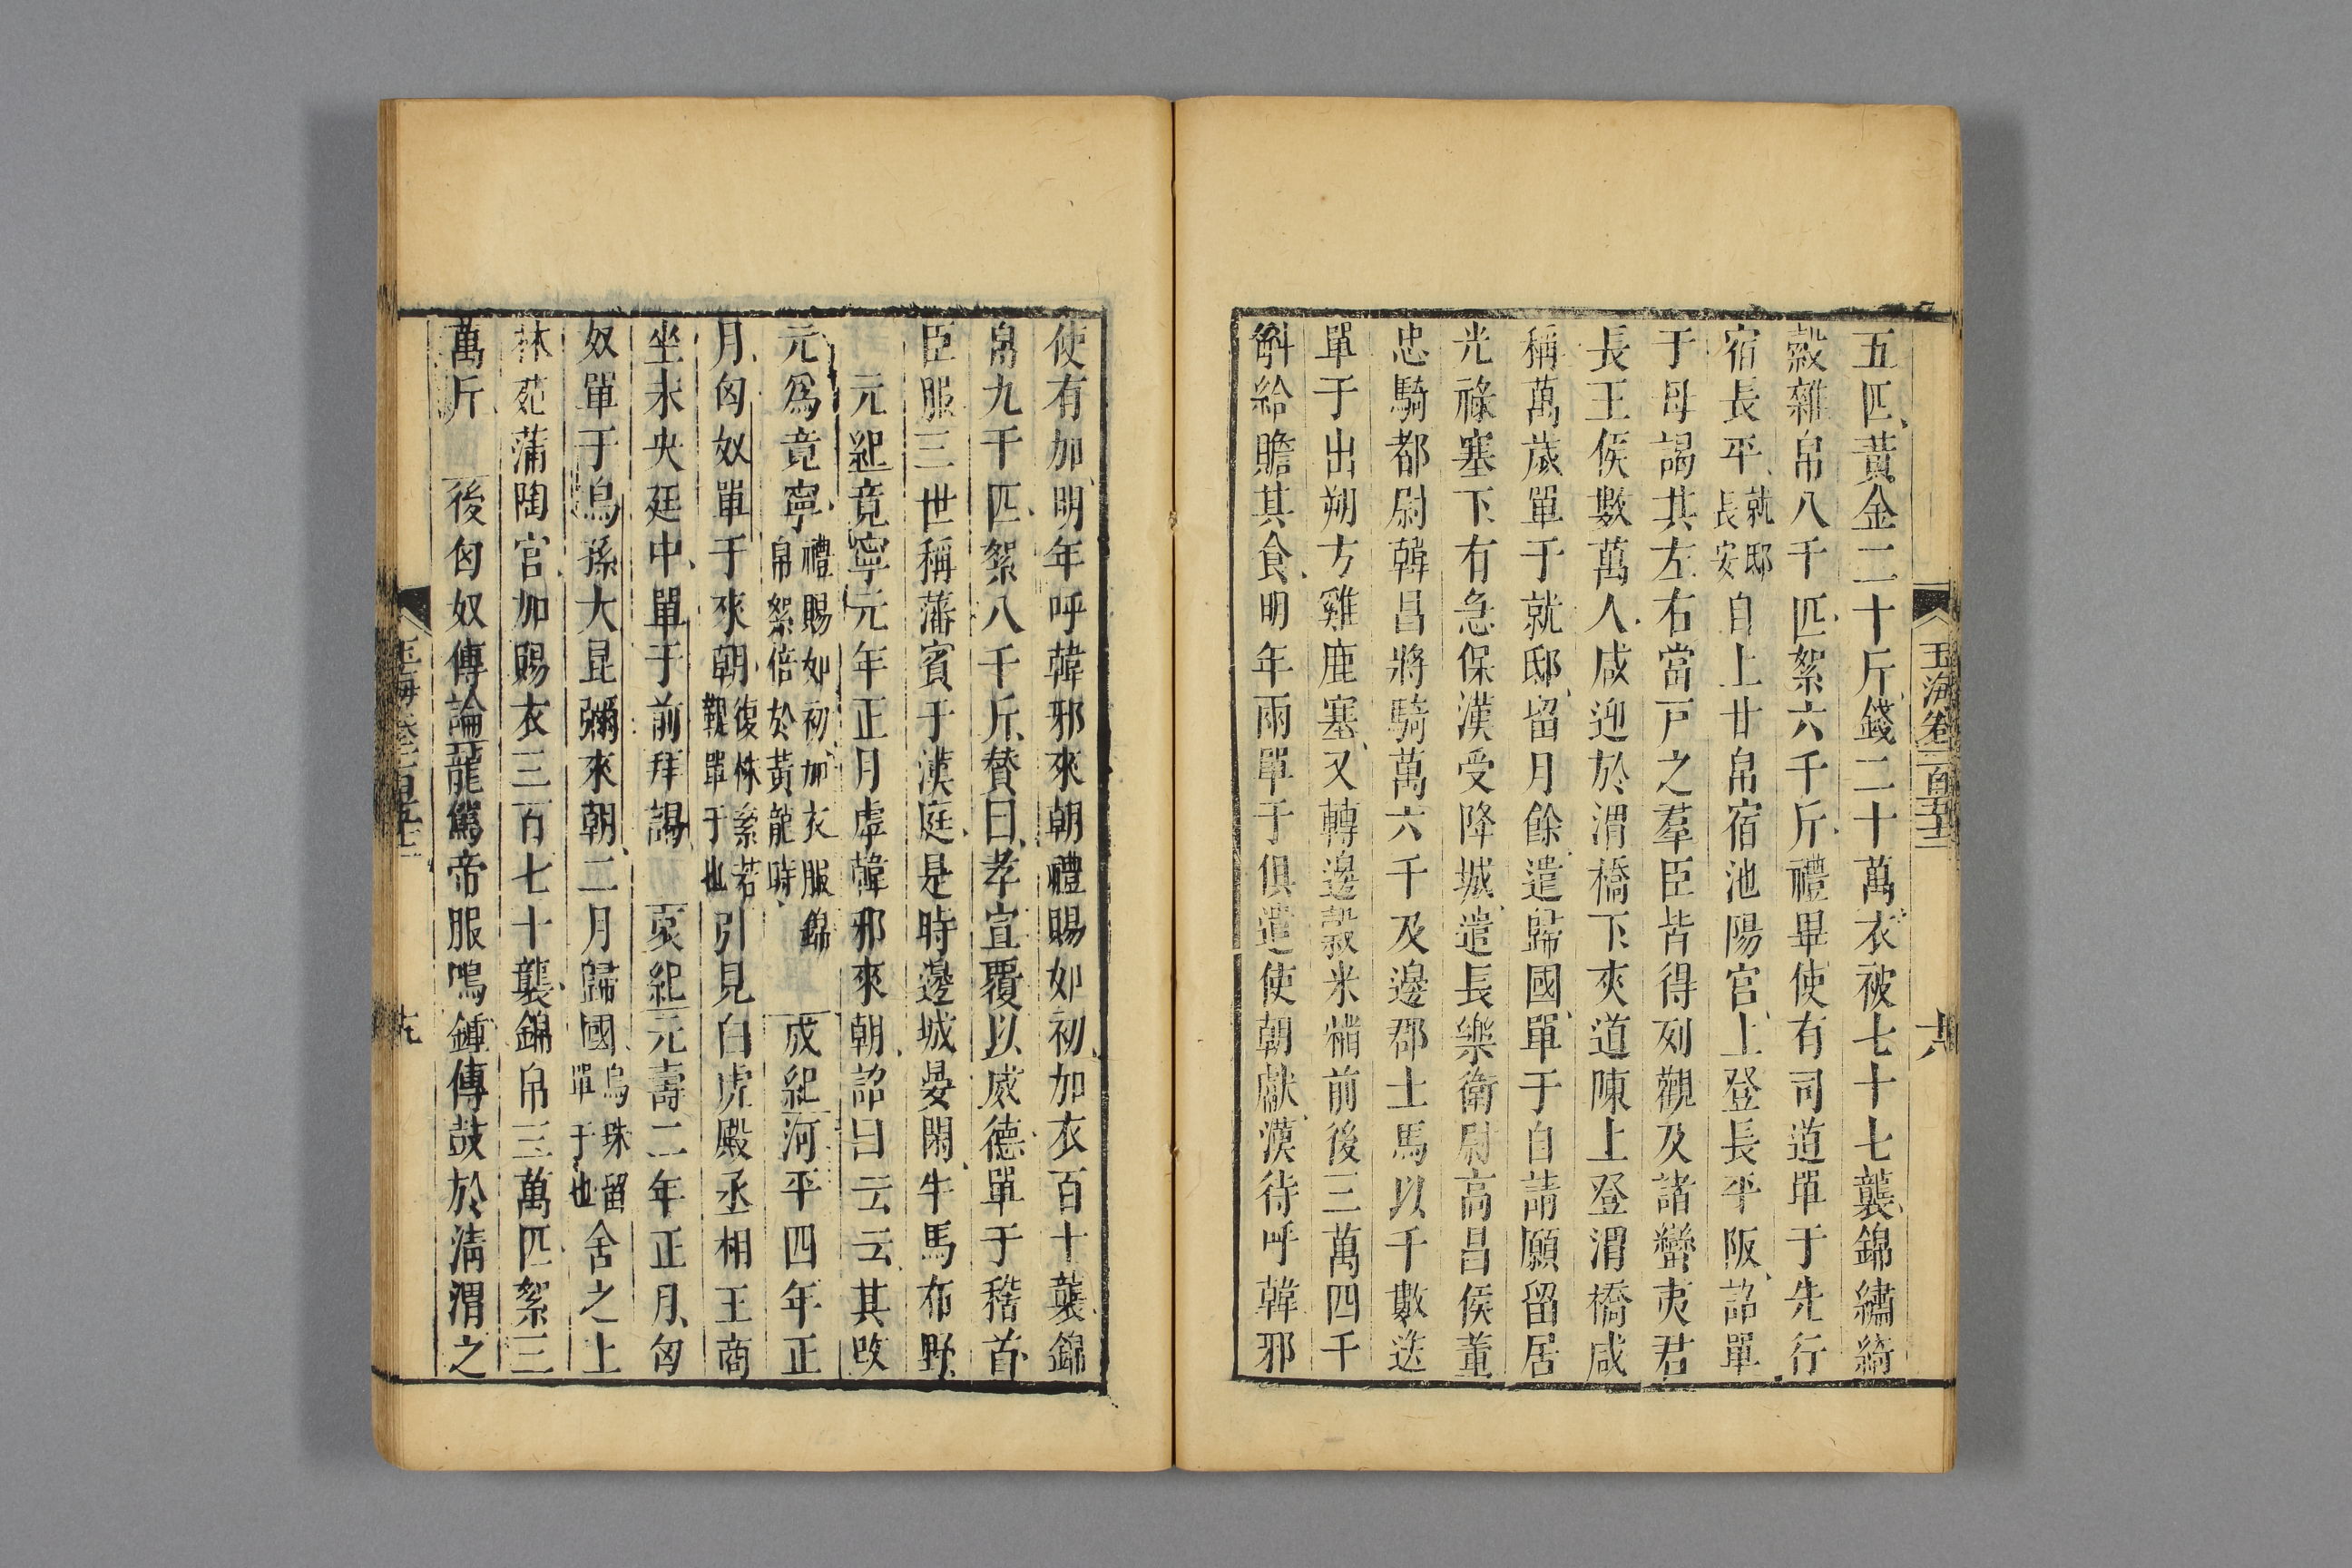 玉海卷一百五十三
六
五匹黃金二十斤錢二十萬衣被七十七襲錦繡綺
縠雜帛八千匹絮六千斤禮畢使有司道單于先行
宿長平就邸長安自上甘帛宿池陽宮上登長平阪詔單
于母謁其左右當戸之羣臣皆得列觀及諸蠻夷君
長王侯數萬人咸迎於渭橋下夾道陳上登渭橋咸
稱萬歲單于就邸留月餘遣歸國單于自請願留居
光祿塞下有急保漢受降城遣長樂衛尉高昌侯董
忠騎都尉韓昌將騎萬六千及邊郡士馬以千數送
單于出朔方雞鹿塞又轉邊穀米糒前後三萬四千
斛給贍其食明年兩單于俱遣使朝獻漢待呼韓邪
使有加明年呼韓邪來朝禮賜如初加衣百十襲錦
帛九千匹絮八千斤賛曰孝宣覆以威德單于稽首
臣服三世稱藩賓于漢庭是時邊城晏閑牛馬布野
元紀竟寧元年正月虖韓邪來朝詔曰云云其改
元爲竟寧禮賜如初加衣服錦帛絮倍於黃龍時成紀河平四年正
月匈奴單于來朝復株絫若鞮單于也引見白虎殿丞相王商
坐未央廷中單于前拜謁哀紀元壽二年正月匈
奴單于烏孫大昆彌來朝二月歸國烏珠留單于也舍之上
林苑蒲陶宮加賜衣三百七十襲錦帛三萬匹絮三
萬斤後匈奴傳論龍駕帝服鳴鍾傳鼓於淸渭之
玉海卷一百五十三